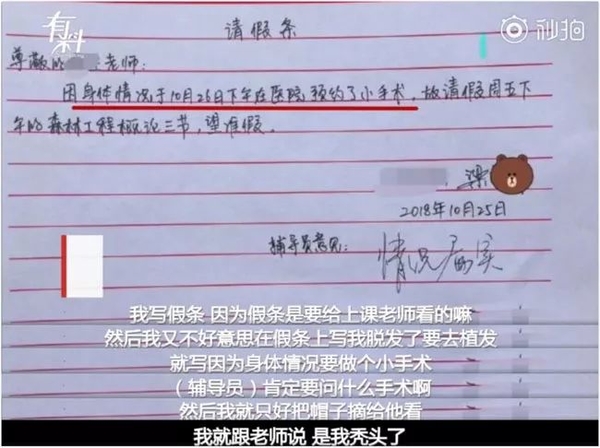 有料
秒拍
请假条
尊敬的 老师:
因身体情况于10月26日下午在医院预约了小手术,故请假周五下
午的森林工程概论三节,望准假。
梁
2018年10月25日
辅导员意见:
情况属实
我写假条 因为假条是要给上课老师看的嘛
然后我又不好意思在假条上写我脱发了要去植发
就写因为身体情况要做个小手术
(辅导员)肯定要问什么手术啊
然后我就只好把帽子摘给他看
我就跟老师说 是我秃头了